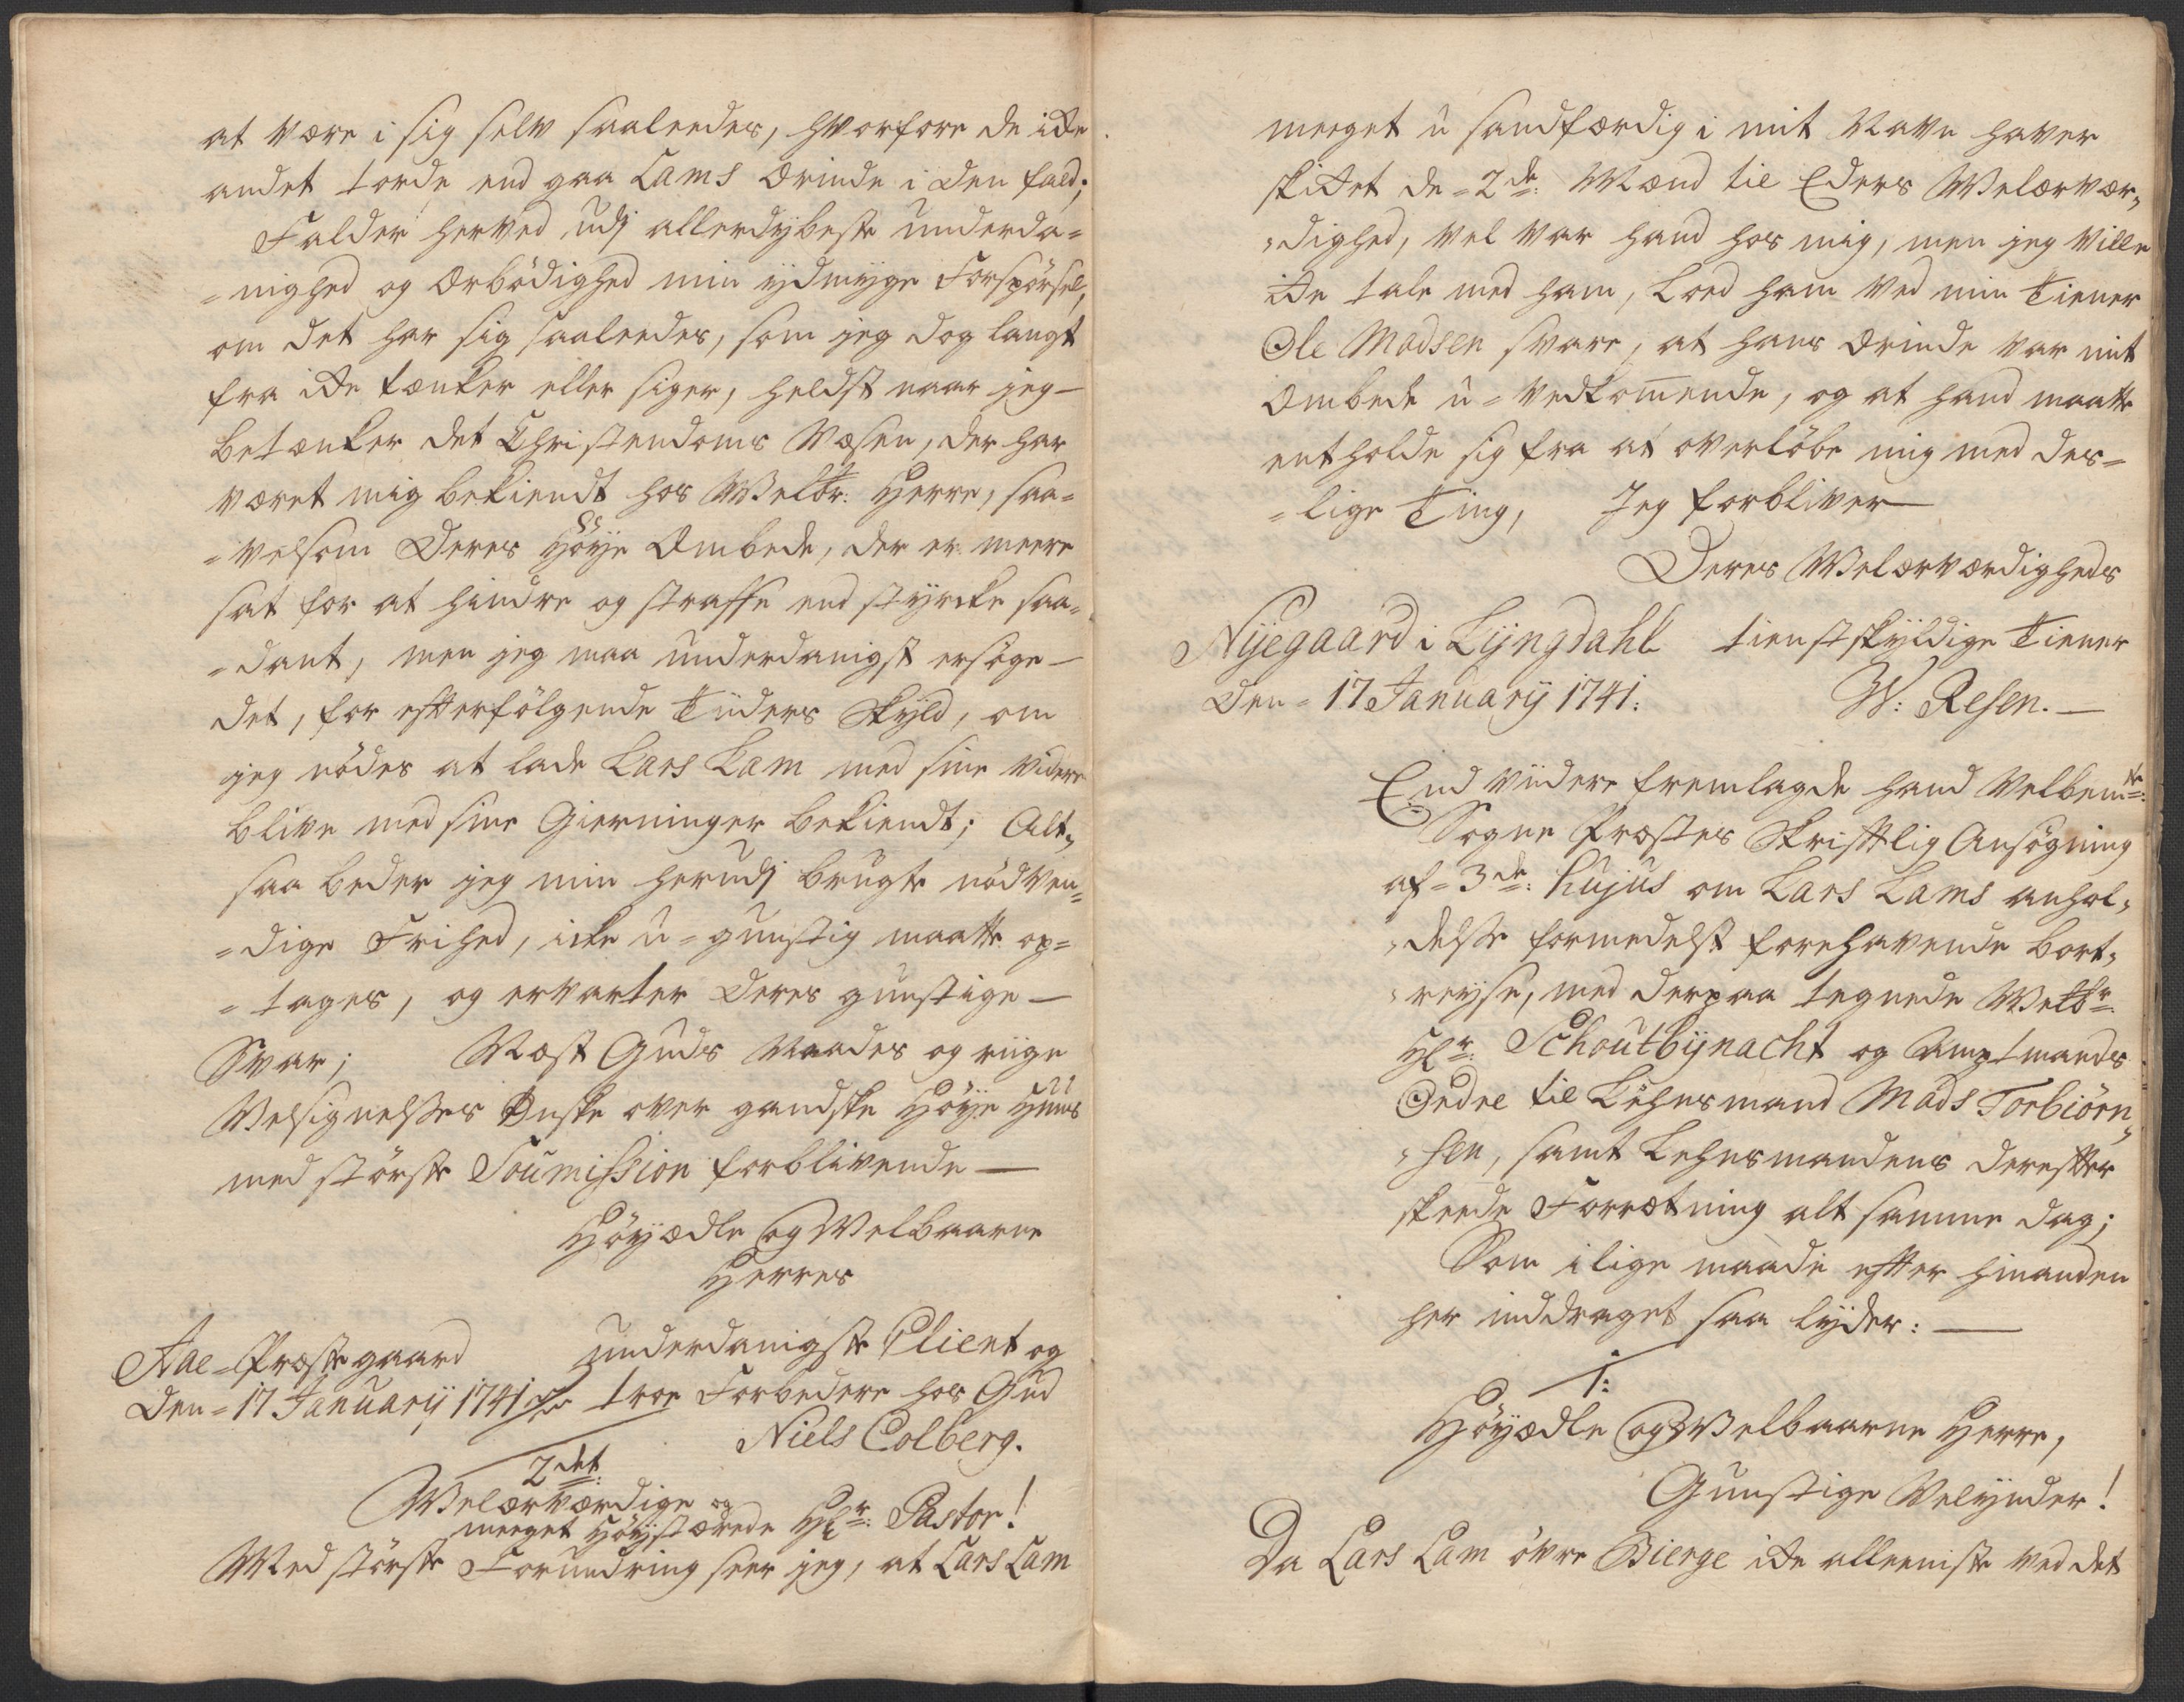 at være i sig selv saaleedes, hvorfore de icke
andet torde end gaa Lams Ærinde i den fald;
Falder herved udj allerdybeste underda=
=nighed og Ærbödighed min ydmyge Forspörsel,
om det har sig saaleedes, som jeg dog langt
fra icke tænker eller siger, heldst naar jeg —
betænker det Christendoms Væsen, der har
været mig bekiendt hos Welbr: Herre, saa=
=velsom Deres Höye Embede, der er meere
sat for at hindre og straffe end styrcke saa=
=dant, men jeg maa underdanigst ersöge —
det, for efterfölgende Tiiders Skyld, om
jeg nödes at lade Lars Lam med sine videre
blive med sine Gierninger bekiendt; Alt=
saa beder jeg min herudj brugte nödven=
=dige Frihed, icke u=gunstig maatte op=
=tages, og ervarter Deres gunstige —
Svar; Næst Guds Naades og riige
Velsignelses Ønske over gandske Höye Huus
med störste Soumission forblivende —
Höyædle og Velbaarne
Herres
Aae=Præstegaard underdanigste Client og
Den=17 Januarij 1741 troe Forbedere hos Gud
Niels Colberg.
2det:
Welærværdige og
meeget Höystærede Hr: Pastor!
Med störste Forundring seer jeg, at Lars Lam
meeget u sandfærdig i mit Navn haver
skicket de=2de: Mænd til Eders Welærvær=
=dighed, vel var hand hos mig, men jeg ville
icke tale med ham, Loed ham ved min Tiener
Ole Madsen svare, at hans Ærinde var mit
Embede u=vedkomende, og at hand maatte
entholde sig fra at overlöbe mig med des=
=lige Ting, Jeg forbliver —
Deres Welærværdigheds
Nyegaard i Lyngdahl tienstskyldige Tiener
Den=17 Januarij 1741: W: Resen. —
End viidere fremlagde hand Velbemte:
Sogne Præstes Skriftlig Ansögning
af=3de: hujus om Lars Lams anhol=
=delse formedelst forehavende bort=
=reyse, med derpaa tegnede Welbr:
Hr: Schoutbynacht og Amptmands
Ordre til Lehnsmand Mads Torbiörn=
=sen, samt Lehnsmandens derefter
skeede Forretning alt samme dag;
Som i lige maade efter hinanden
her inddraget saa lyder: —
1:
Höyædle og Velbaarne Herre,
Gunstige Velynder!
Da Lars Lam övre Bierge icke alleeniste ved det